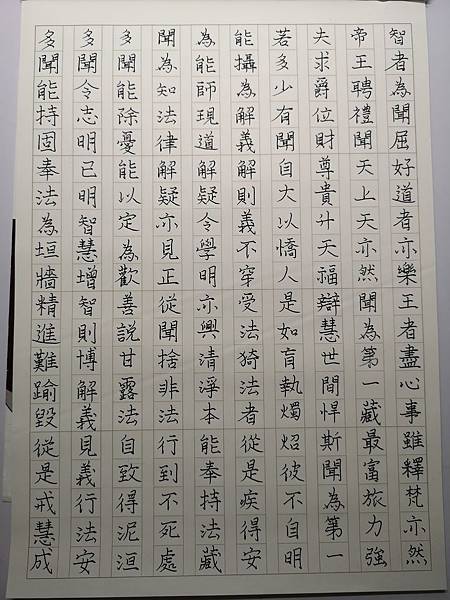 多聞能持固奉法為垣牆精進難踰毀從是戒慧成
多聞令志明已明智慧增智則博解義見義行法安
多聞能除憂能以定為歡善說甘露法自致得泥洹
聞為知法律解疑亦見正從聞捨非法行到不死處
為能師現道解疑令學明亦興清淨本能奉持法藏
能攝為解義解則義不穿受法猗法者從是疾得安
若多少有聞自大以憍人是如盲執燭炤彼不自明
夫求爵位財尊貴升天福辯慧世間悍斯聞為第一
帝王聘禮聞天上天亦然聞為第一藏最富旅力強
智者為聞屈好道者亦樂王者盡心事雖釋梵亦然